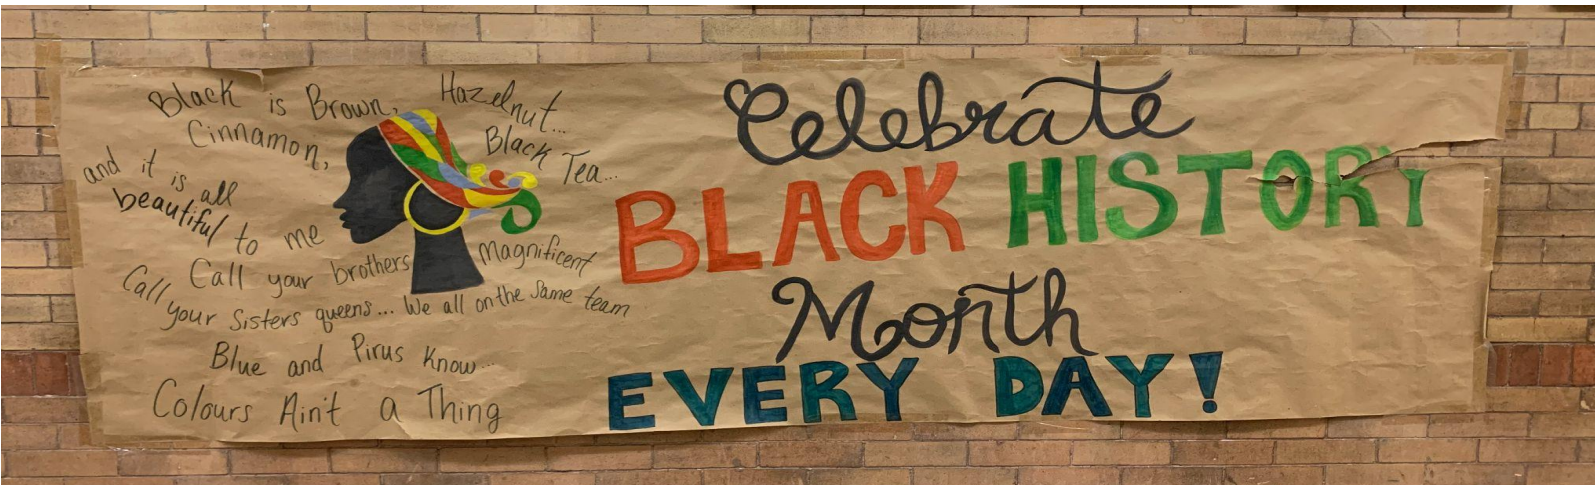 Black is Brown, Hazelnut...
Cinnamon, Black Tea...
and it is all
beautiful to me
Call your brothers Magnificent
Call your Sisters queens... We all on the same team
Blue and Pirus know...
Colours Ain't a Thing
Celebrate
BLACK HISTORY
Month
EVERY DAY!